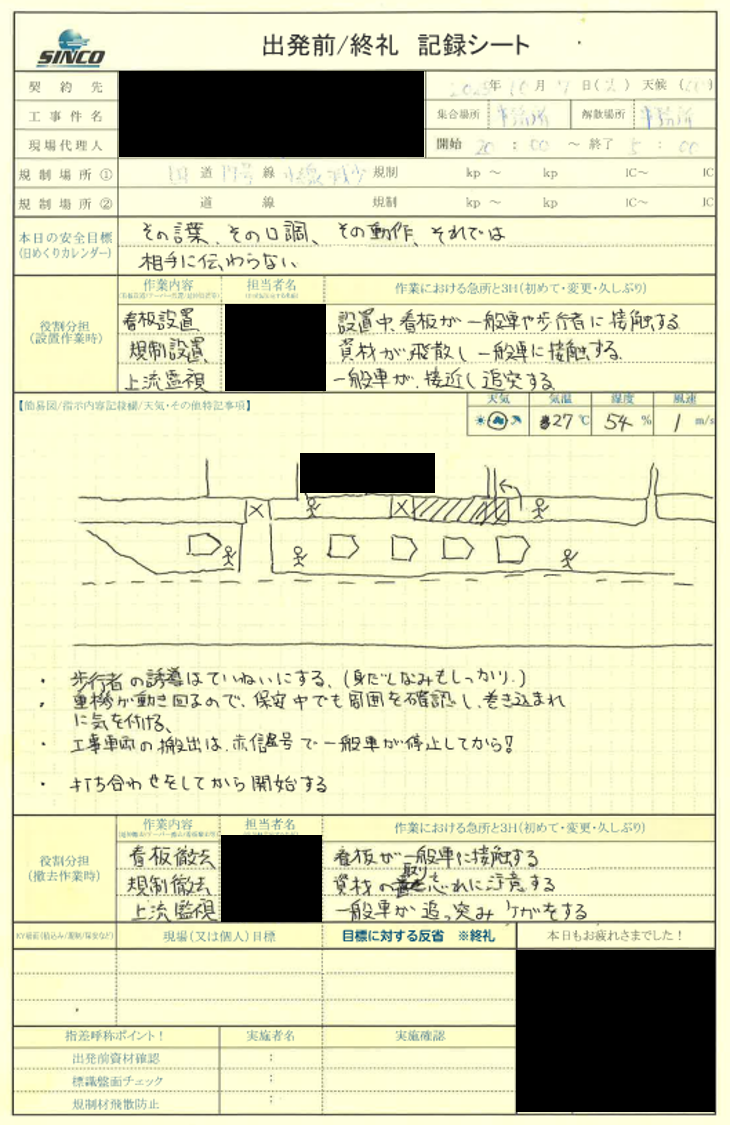 SINCO
出発前/終礼 記録シート
契約先
2025年10月7日(火) 天候( )
工事件名
集合場所 事務所 解散場所 事務所
現場代理人
開始 20:00 ~ 終了 5:00
規制場所① 国道 17号線 車線減少 規制 kp ~ kp IC~ IC
規制場所② 道 線 規制 kp ~ kp IC~ IC
本日の安全目標
(日めくりカレンダー)
その言葉、その口調、その動作、それでは
相手に伝わらない
役割分担
(設置作業時)
作業内容 担当者名 作業における急所と3H(初めて・変更・久しぶり)
看板設置 設置中、看板が一般車や歩行者に接触する
規制設置 資材が飛散し一般車に接触する
上流監視 一般車が、接近し追突する
【簡易図/指示内容記録欄/天気・その他特記事項】
天気 気温 湿度 風速
27℃ 54% 1 m/s
・ 歩行者の誘導はていねいにする、(身だしなみもしっかり。)
・ 重機が動き回るので、保安中でも周囲を確認し、巻き込まれ
に気を付ける、
・ 工事車両の搬出は、赤信号で一般車が停止してから!
・ 打ち合わせをしてから開始する
役割分担
(撤去作業時)
作業内容 担当者名 作業における急所と3H(初めて・変更・久しぶり)
看板撤去 看板が一般車に接触する
規制撤去 資材の取り忘れに注意する
上流監視 一般車が追っ突みケガをする
現場(又は個人)目標 目標に対する反省 ※終礼 本日もお疲れさまでした!
指差呼称ポイント! 実施者名 実施確認
出発前資材確認 :
標識盤面チェック :
規制材飛散防止 :